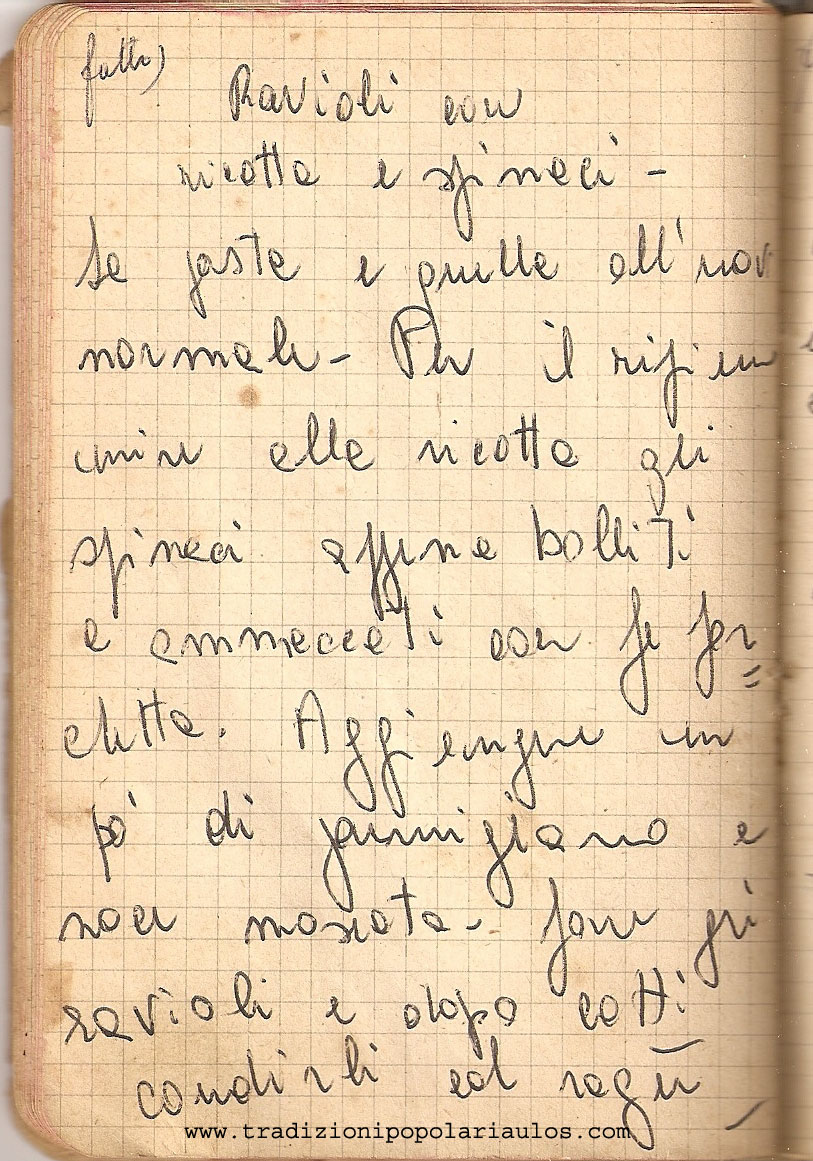 fatti)
Ravioli con
ricotta e spinaci -
La pasta e quella all'uov
normale - Per il ripien
unire alla ricotta gli
spinaci appena bolliti
e ammaccati con la for=
chetta. Aggiungere un
pò di parmigiano e
noce moscata - fare gli
ravioli e dopo cotti
condirli col ragù
www.tradizionipopolariaulos.com